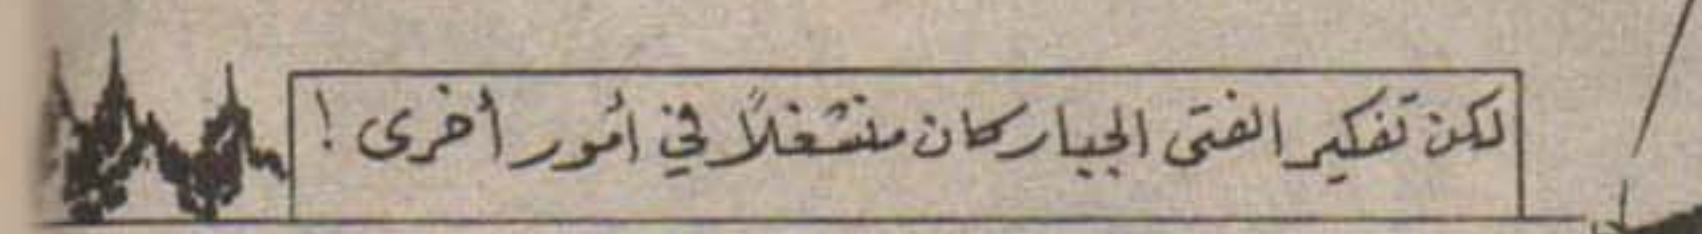 لكن تفكير الفتى الجبار كان منشغلاً في أمور أخرى !